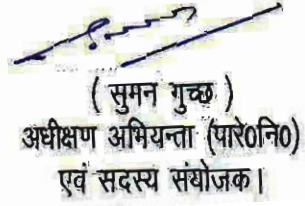 ( सुमन गुच्छ )
अधीक्षण अभियन्ता (पारे0नि0)
एवं सदस्य संयोजक।